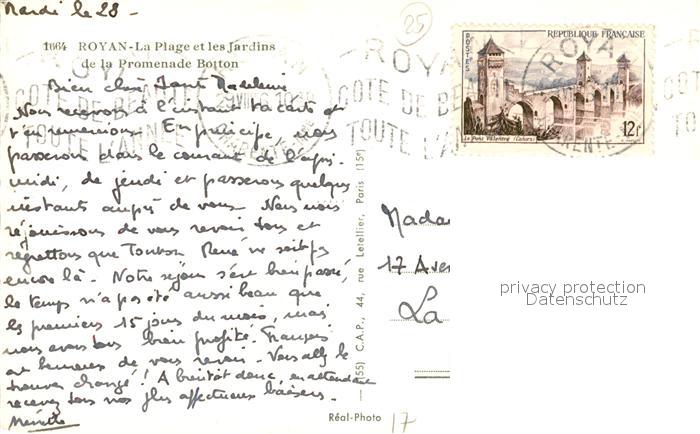 Mardi le 28 -
1664 ROYAN - La Plage et les Jardins
de la Promenade Botton
Bien chère Tante Madeleine
Nous recevons à l'instant ta carte et
t'en remercions. En principe, nous
passerons dans le courant de l'après-
midi, de jeudi et passerons quelques
instants auprès de vous. Nous nous
réjouissons de vous revoir tous et
regrettons que Tonton René ne soit pas
encore là. Notre séjour s'est bien passé,
le temps n'a pas été aussi beau que
les premiers 15 jours du mois, mais
nous avons tous bien profité. François
est heureux de vous revoir. Vous allez le
trouver changé! A bientôt donc, en attendant
recevez tous nos plus affectueux baisers.
25
REPUBLIQUE FRANÇAISE
POSTES
12F
Le Pont Valentré (Cahors)
ROYAN
COTE DE BEAUTE
TOUTE L'ANNEE
ROYAN
CHARENTE
(55) C.A.P., 44, rue Letellier, Paris (15e)
Réal-Photo
17
Madam
17 Aven
La
privacy protection
Datenschutz